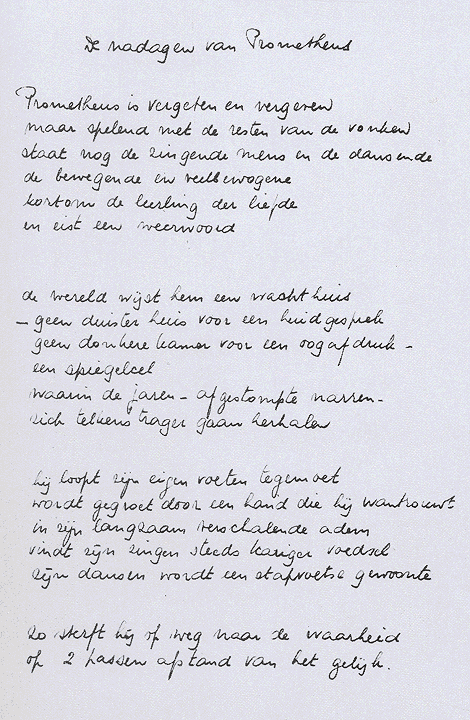 De nadagen van Prometheus
Prometheus is vergeten en vergeven
maar spelend met de resten van de vonken
staat nog de zingende mens en de dansende
de bewegende en veelbewogene
kortom de leerling der liefde
en eist een weerwoord
de wereld wijst hem een wachthuis
– geen duister huis voor een huidgesprek
geen donkere kamer voor een oogafdruk –
een spiegelcel
waarin de jaren – afgestompte narren –
zich telkens trager gaan herhalen
hij loopt zijn eigen voeten tegemoet
wordt gegroet door een hand die hij wantrouwt
in zijn langzaam verschalende adem
vindt zijn zingen steeds kariger voedsel
zijn dansen wordt een stapvoetse gewoonte
zo sterft hij op weg naar de waarheid
op 2 passen afstand van het gelijk.